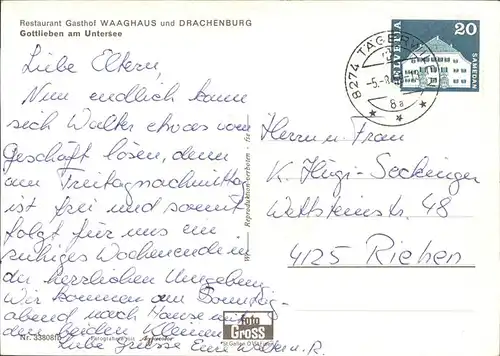 Restaurant Gasthof WAAGHAUS und DRACHENBURG
Gottlieben am Untersee
Liebe Eltern,
Nun endlich kann
sich Walter etwas vom
Geschäft lösen, denn
am Freitagnachmittag
ist frei und somit
folgt für uns ein
ruhiges Wochenende in
der herrlichen Umgebung.
Wir kommen am Sonntag-
abend nach Hause mit
den beiden Kleinen
Liebe Grüsse Eure Walter u. R.
Nr. 33808
Reproduktion verboten
foto
GROSS
St. Gallen
8274 TÄGERWILEN
-5.-8
8a
HELVETIA
20
SARNEN
Herrn u. Frau
K. Hügi-Seckinger
Wettsteinstr. 48
4125 Riehen